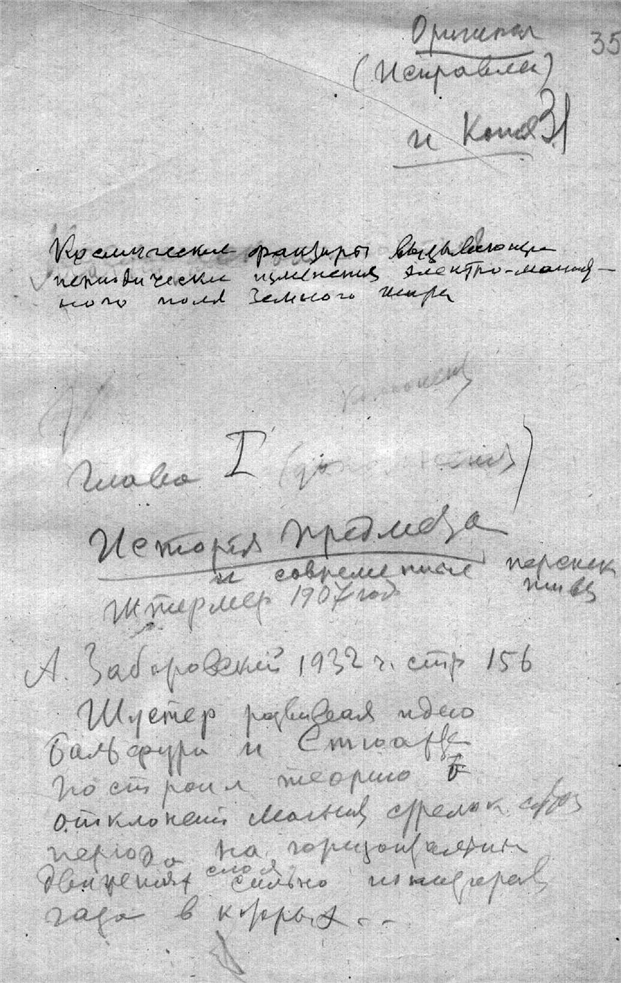 Оригинал
35
(Исправлен)
и Копия 31
Космические факторы вызывающие
периодические изменения электро-магнит-
ного поля Земного шара
Глава I (дополнения)
История предмета
и современные перспек
тивы
Штермер 1907 год
А. Заборовский 1932 г. стр 156
Шустер развивая идею
Бальфура и Стюарта
построил теорию
отклонений магнит стрелок
период на горизонтальн
движения слоя сильно
газа в